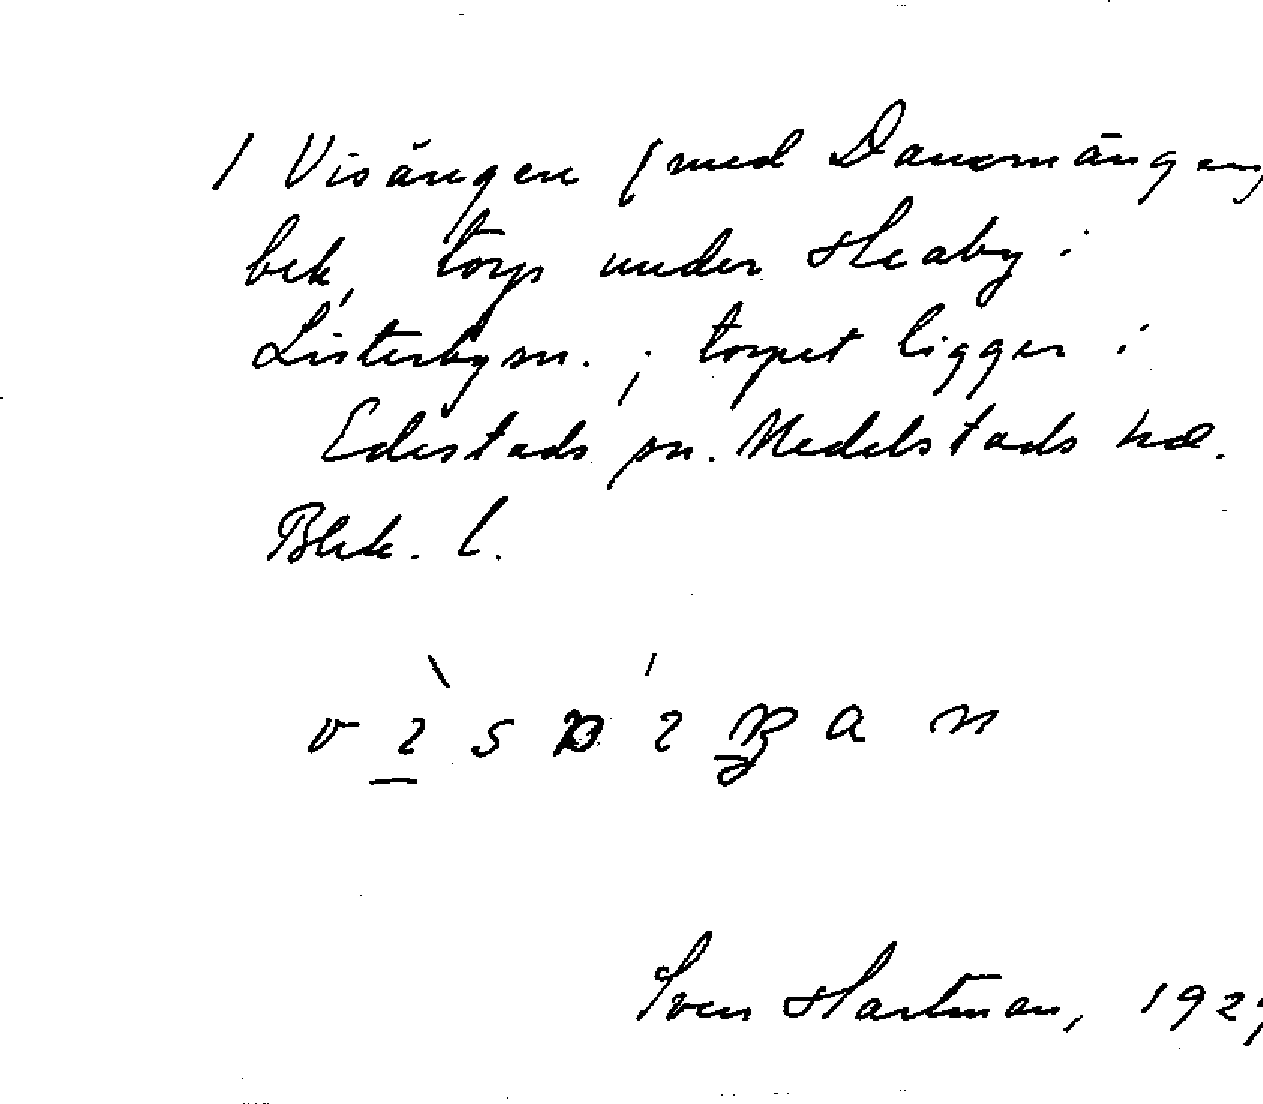 1 Visängen (med Dansmängen,
bek, torp under Heaby i
Listerby sn.; torpet ligger i
Edestads sn. Medelstads hd.
Blek. l.
Sven Hartman, 192